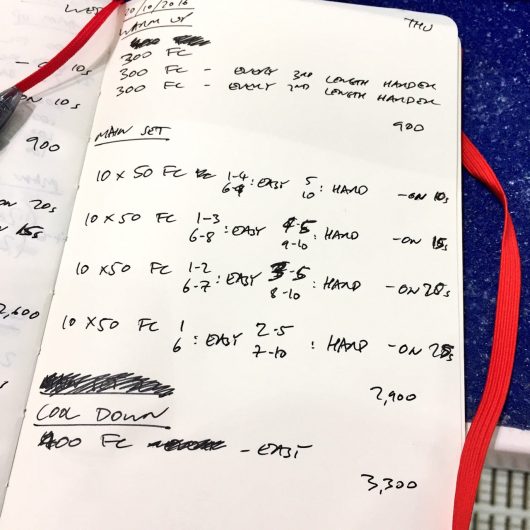 WED
20/10/2016
THU
WARM UP
300 FC
300 FC - EVERY 3RD LENGTH HARDER
300 FC - EVERY 2ND LENGTH HARDER
900
MAIN SET
10 x 50 FC 1-4 6-9 : EASY 5 10 : HARD - ON 10s
10 x 50 FC 1-3 6-8 : EASY 4-5 9-10 : HARD - ON 15s
10 x 50 FC 1-2 6-7 : EASY 3-5 8-10 : HARD - ON 20s
10 x 50 FC 1 6 : EASY 2-5 7-10 : HARD - ON 25s
2,900
COOL DOWN
400 FC - EASY
3,300
- ON 10s
ON 10s
900
ON 20s
ON 15s
2,600